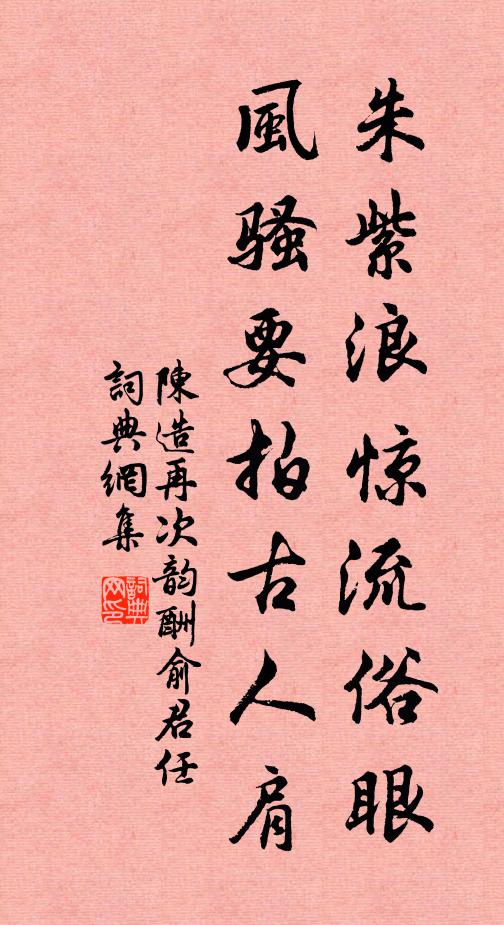 朱紫浪惊流俗眼
風骚要拍古人肩
陳造再次韵酬俞君任
詞典網集
詞典网印